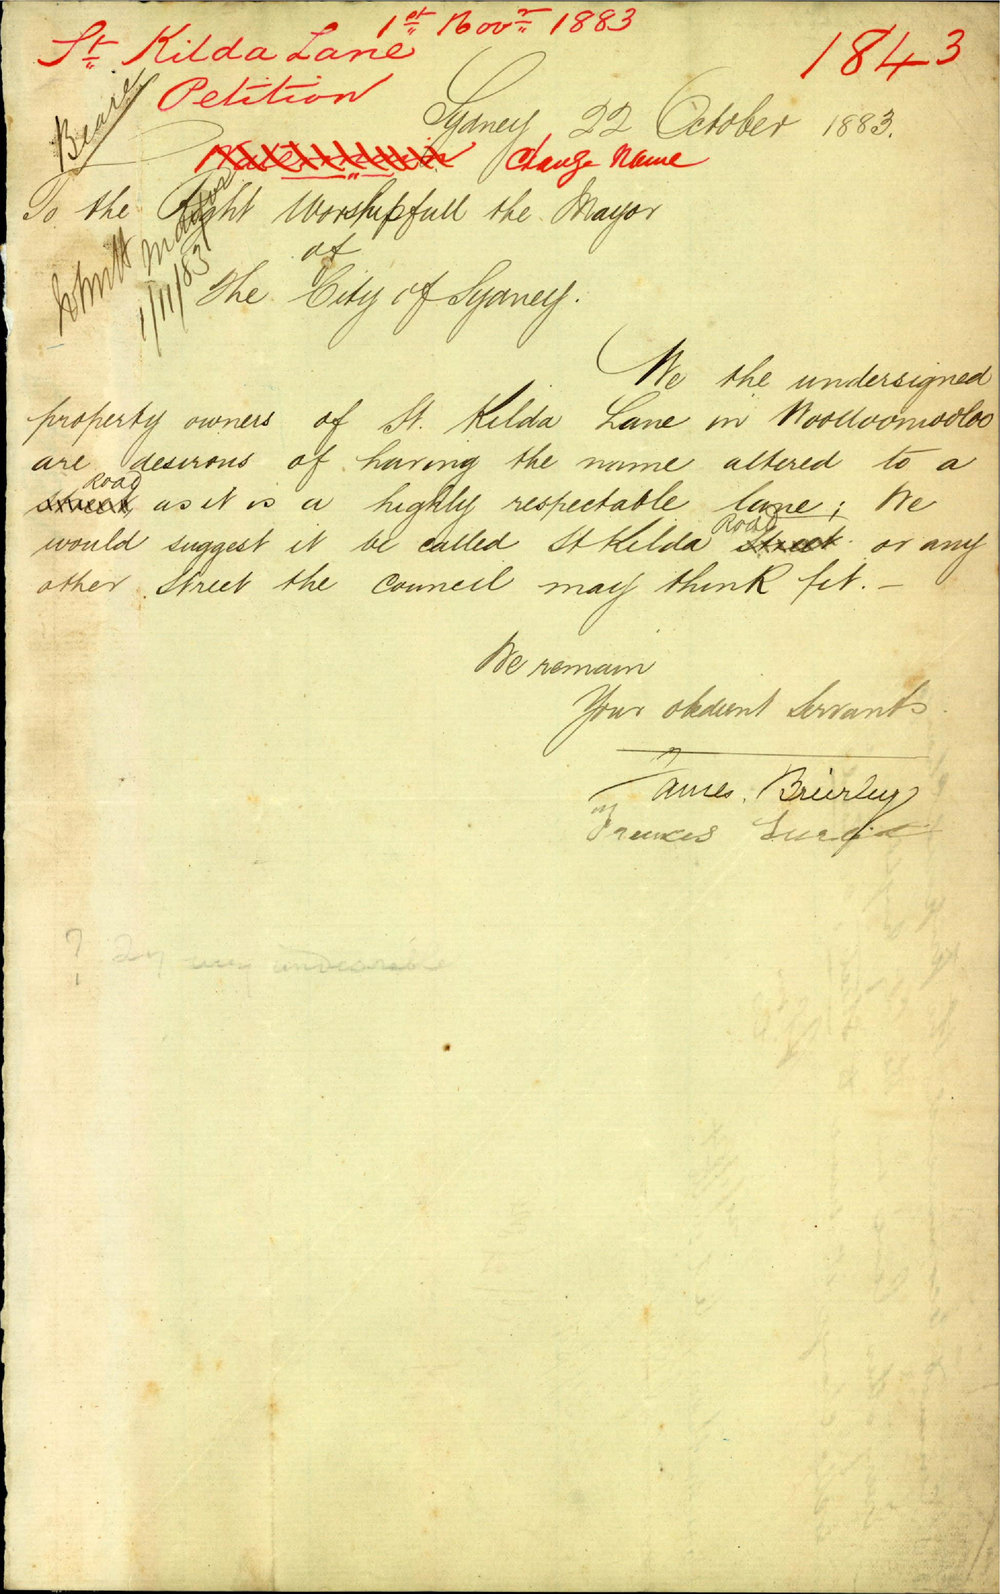 1st Novr 1883
St Kilda Lane
Petition
1843
Sydney 22 October 1883.
Change Name
To the Right Worshipfull the Mayor
of
The City of Sydney.
1/11/83
We the undersigned
property owners of St. Kilda Lane in Woolloomooloo
are desirous of having the name altered to a
Road
street as it is a highly respectable lane; We
Road
would suggest it be called St Kilda Street or any
other Street the Council may think fit. –
We remain
Your obedient Servants
James Brierley
Frances
?